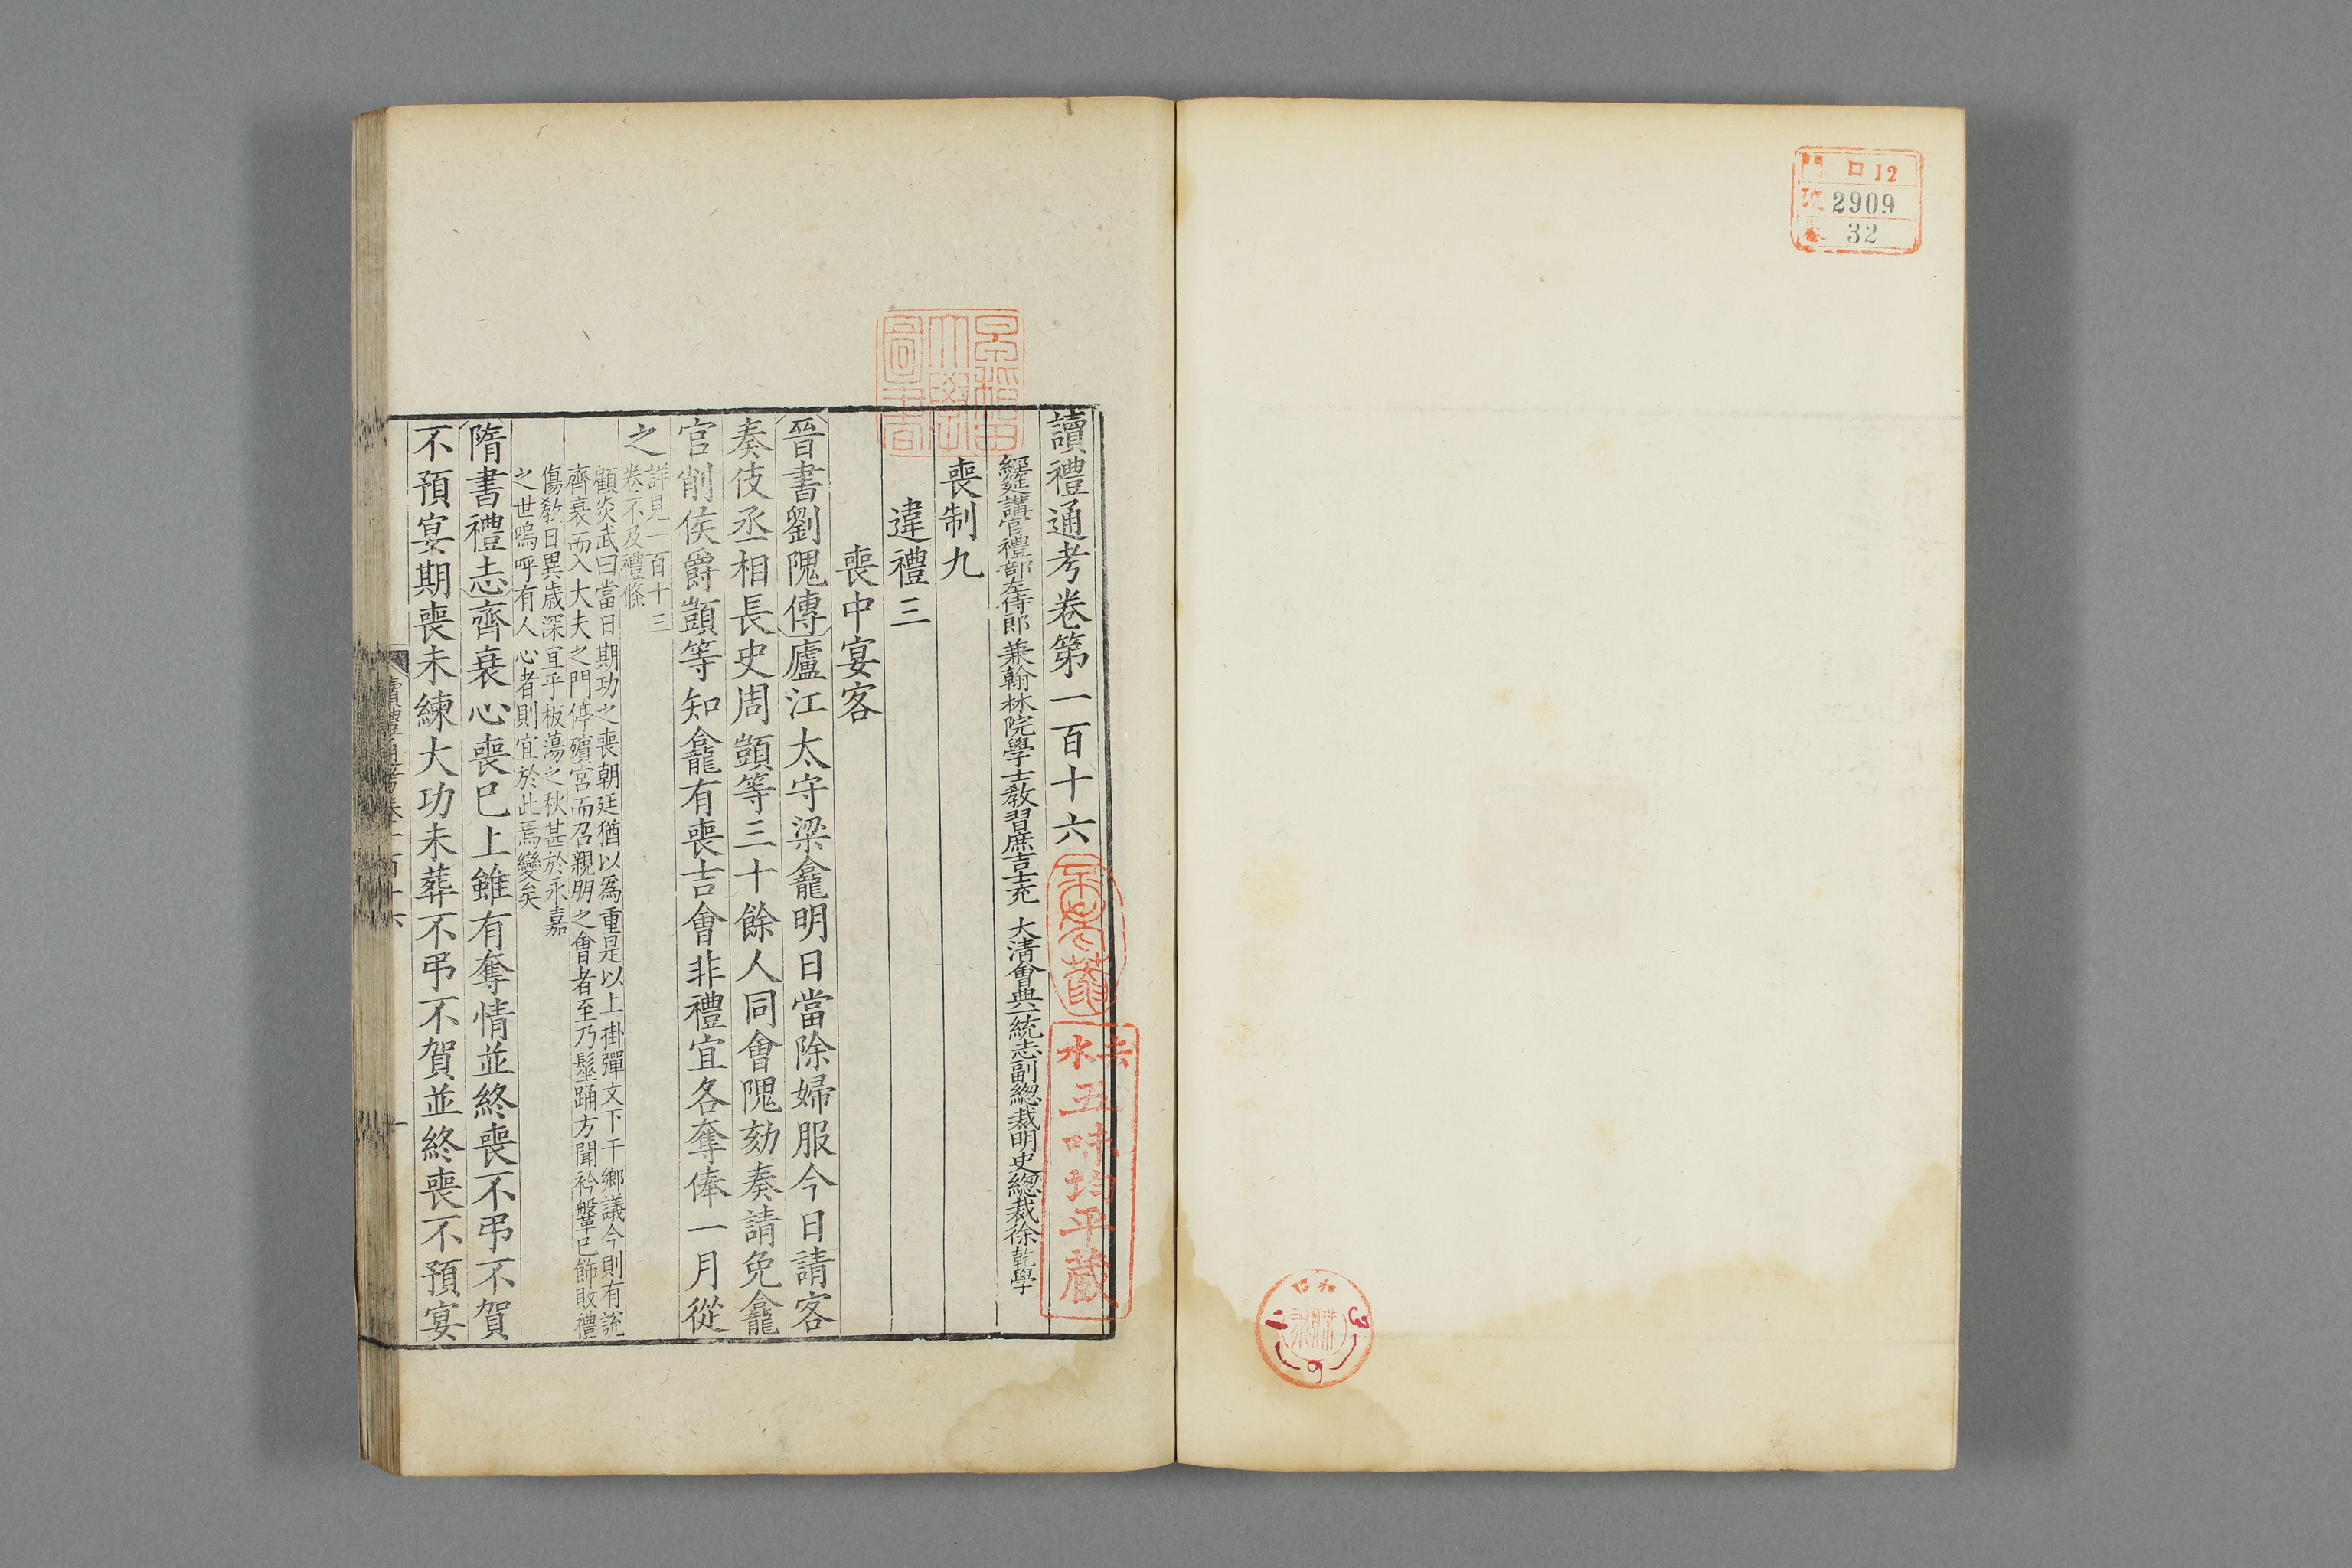 門 口12
號 2909
卷 32
昭和
購求
讀禮通考卷第一百十六
經筵講官禮部左侍郎兼翰林院學士教習庶吉士充 大清會典一統志副總裁明史總裁徐乾學
喪制九
違禮三
喪中宴客
晉書劉隗傳廬江太守梁龕明日當除婦服今日請客
奏伎丞相長史周顗等三十餘人同會隗劾奏請免龕
官削侯爵顗等知龕有喪吉會非禮宜各奪俸一月從
之
詳見一百十三
卷不及禮條
顧炎武曰當日期功之喪朝廷猶以爲重是以上掛彈文下干鄉議今則有說
齊衰而入大夫之門停殯宮而召親朋之會者至乃髽踊方聞衿鞶已飾敗禮
傷敎日異歲深宜乎板蕩之秋甚於永嘉
之世嗚呼有人心者則宜於此焉變矣
隋書禮志齊衰心喪已上雖有奪情並終喪不弔不賀
不預宴期喪未練大功未葬不弔不賀並終喪不預宴
讀禮通考卷一百十六
一
早稻田大學圖書
五味均平藏